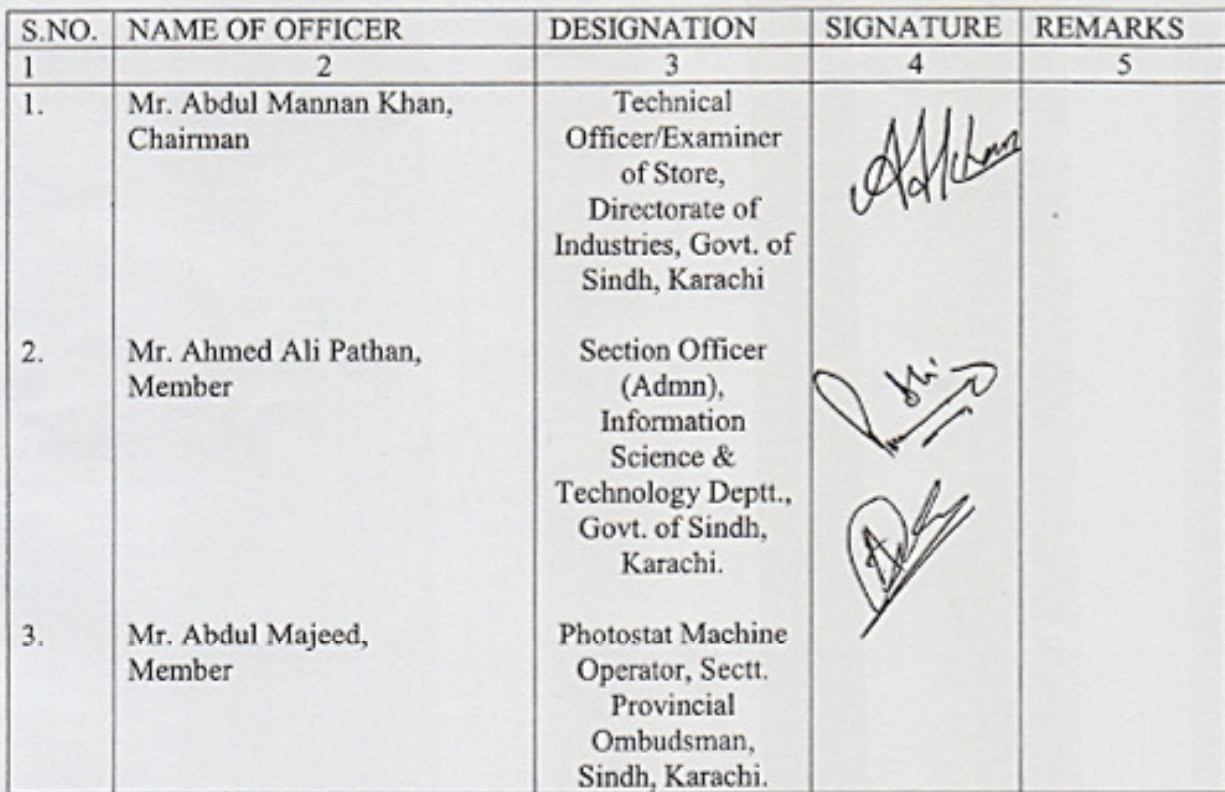 S.NO. NAME OF OFFICER DESIGNATION SIGNATURE REMARKS
1 2 3 4 5
1. Mr. Abdul Mannan Khan, Technical
Chairman Officer/Examiner
of Store,
Directorate of
Industries, Govt. of
Sindh, Karachi
2. Mr. Ahmed Ali Pathan, Section Officer
Member (Admn),
Information
Science &
Technology Deptt.,
Govt. of Sindh,
Karachi.
3. Mr. Abdul Majeed, Photostat Machine
Member Operator, Sectt.
Provincial
Ombudsman,
Sindh, Karachi.